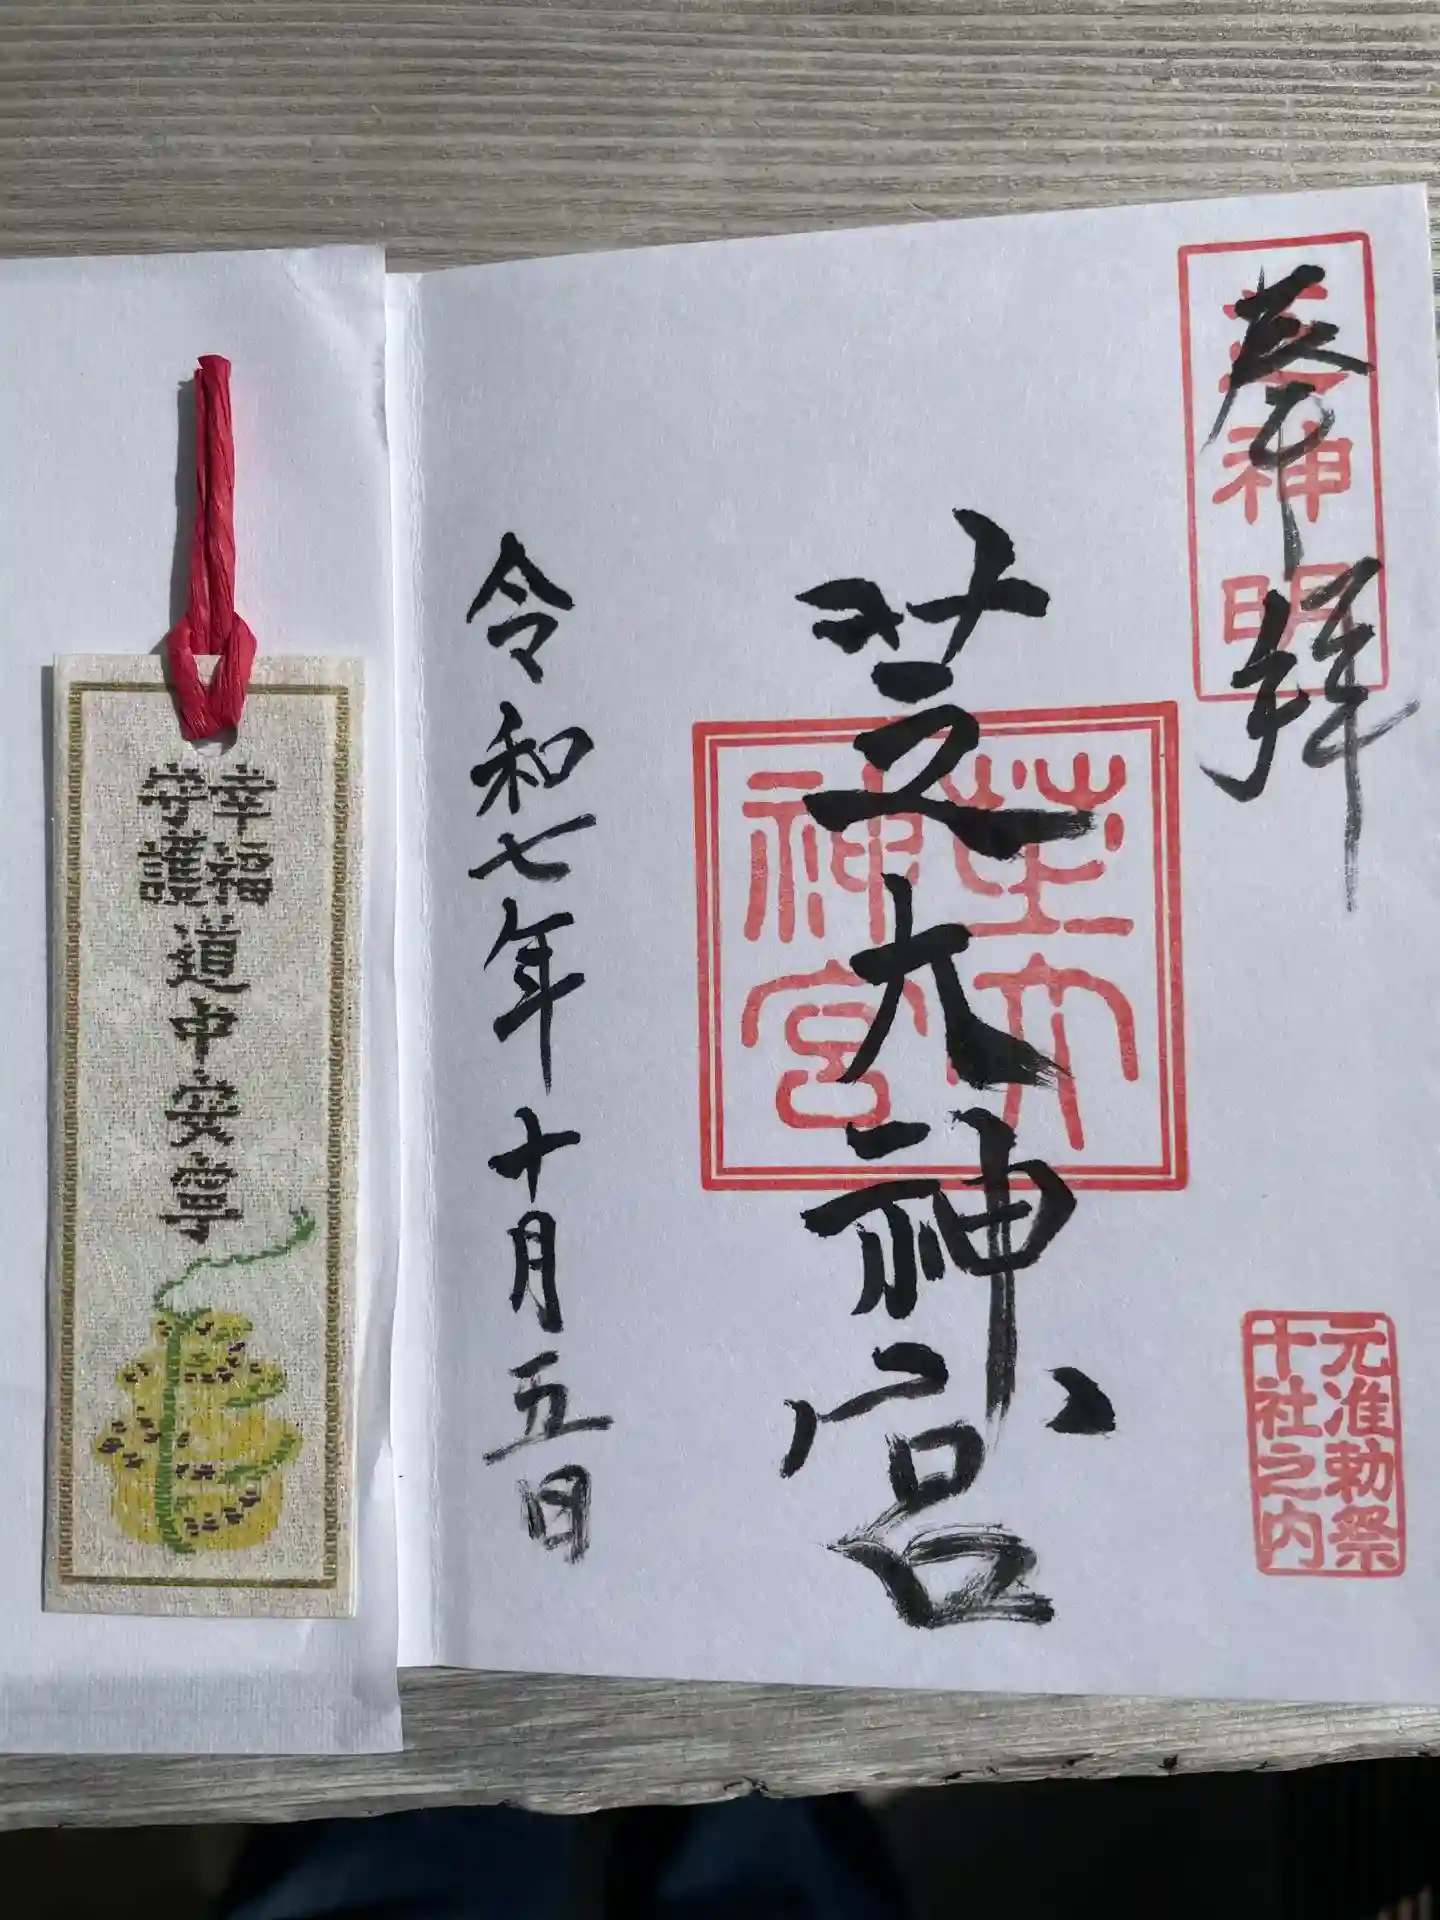 奉拝
芝神明
芝大神宮
芝大
神宮
元准勅祭
十社之内
令和七年十月五日
幸福
守護
道中安全